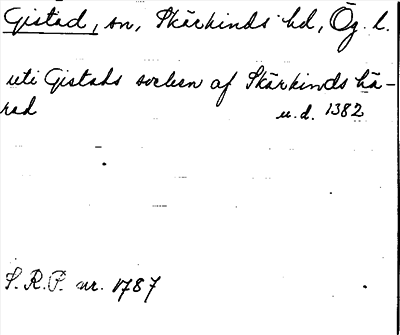 Gistad, sn, Skärkinds hd, Ög. l.
uti Gistads sochen af Skärkinds hä-
rad u.d. 1382
S.R.P. nr. 1787